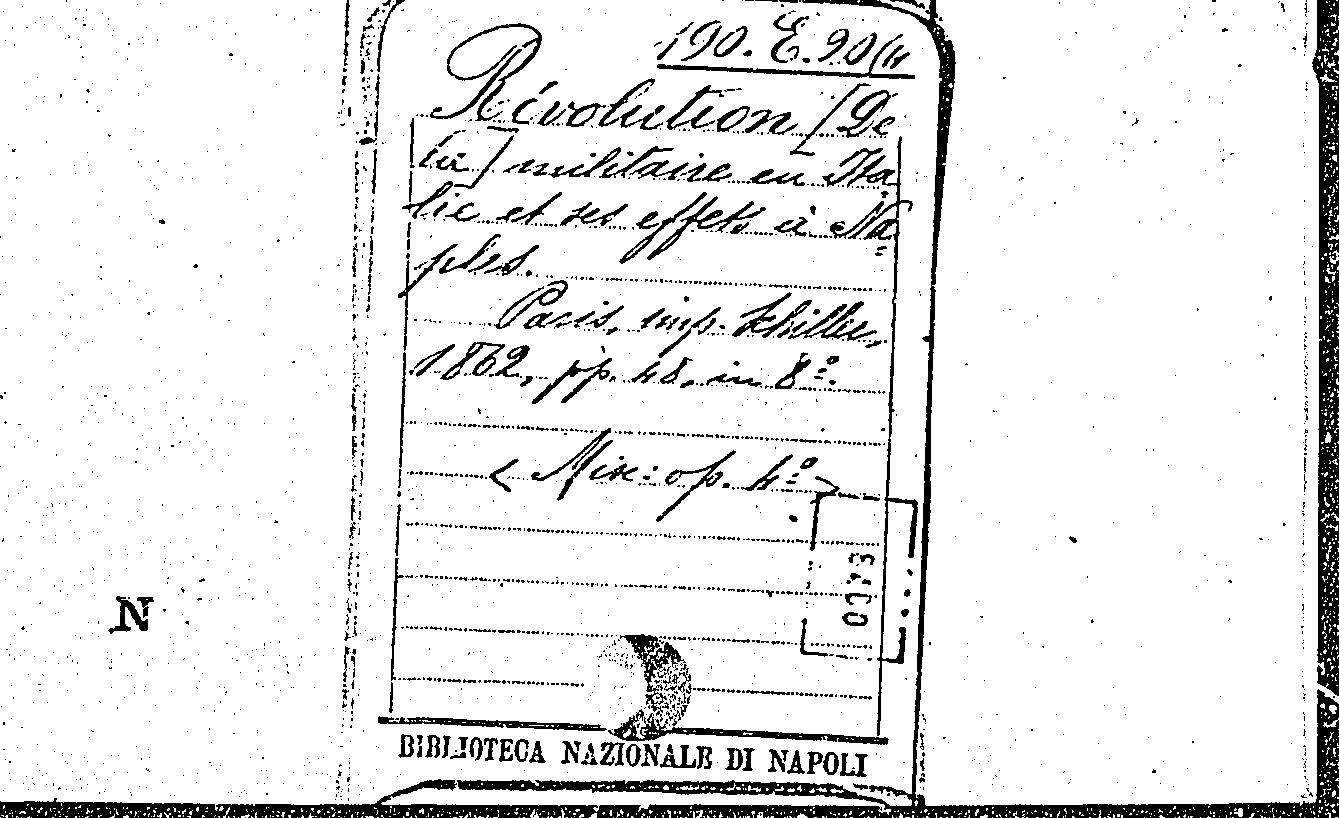 190. E. 90(4
Révolution [De
la] militaire en Ita
lie et ses effets à Na=
ples.
Paris, imp. Schiller,
1862, pp. 48. in 8º.
< Misc: op. 4º >
0043
N
BIBLIOTECA NAZIONALE DI NAPOLI